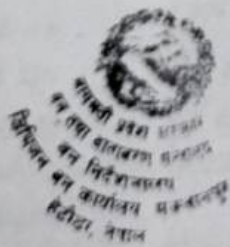 बागमती प्रदेश सरकार
वन तथा वातावरण मन्त्रालय
वन निर्देशनालय
डिभिजन वन कार्यालय मकवानपुर
हेटौंडा, नेपाल